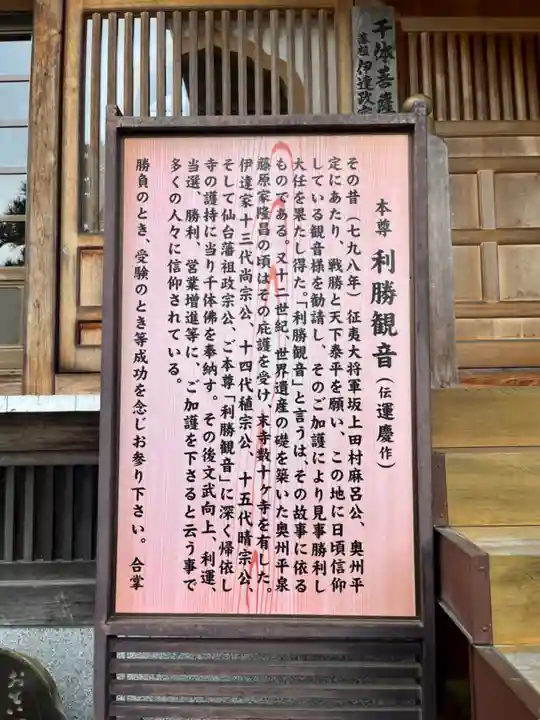 千体菩薩
藩祖伊達政宗
本尊 利勝観音(伝運慶作)
その昔(七九八年)征夷大将軍坂上田村麻呂公、奥州平
定にあたり、戦勝と天下泰平を願い、この地に日頃信仰
している観音様を勧請し、そのご加護により見事勝利し
大任を果たし得た。「利勝観音」と言うは、その故事に依る
ものである。又十二世紀、世界遺産の礎を築いた奥州平泉
藤原家隆昌の頃はその庇護を受け、末寺数十ヶ寺を有した。
伊達家十三代尚宗公、十四代稙宗公、十五代晴宗公、
そして仙台藩祖政宗公、ご本尊「利勝観音」に深く帰依し
寺の護持に当り千体佛を奉納す。その後文武向上、利運、
当選、勝利、営業増進等に、ご加護を下さると云う事で
多くの人々に信仰されている。
勝負のとき、受験のとき等成功を念じお参り下さい。 合掌